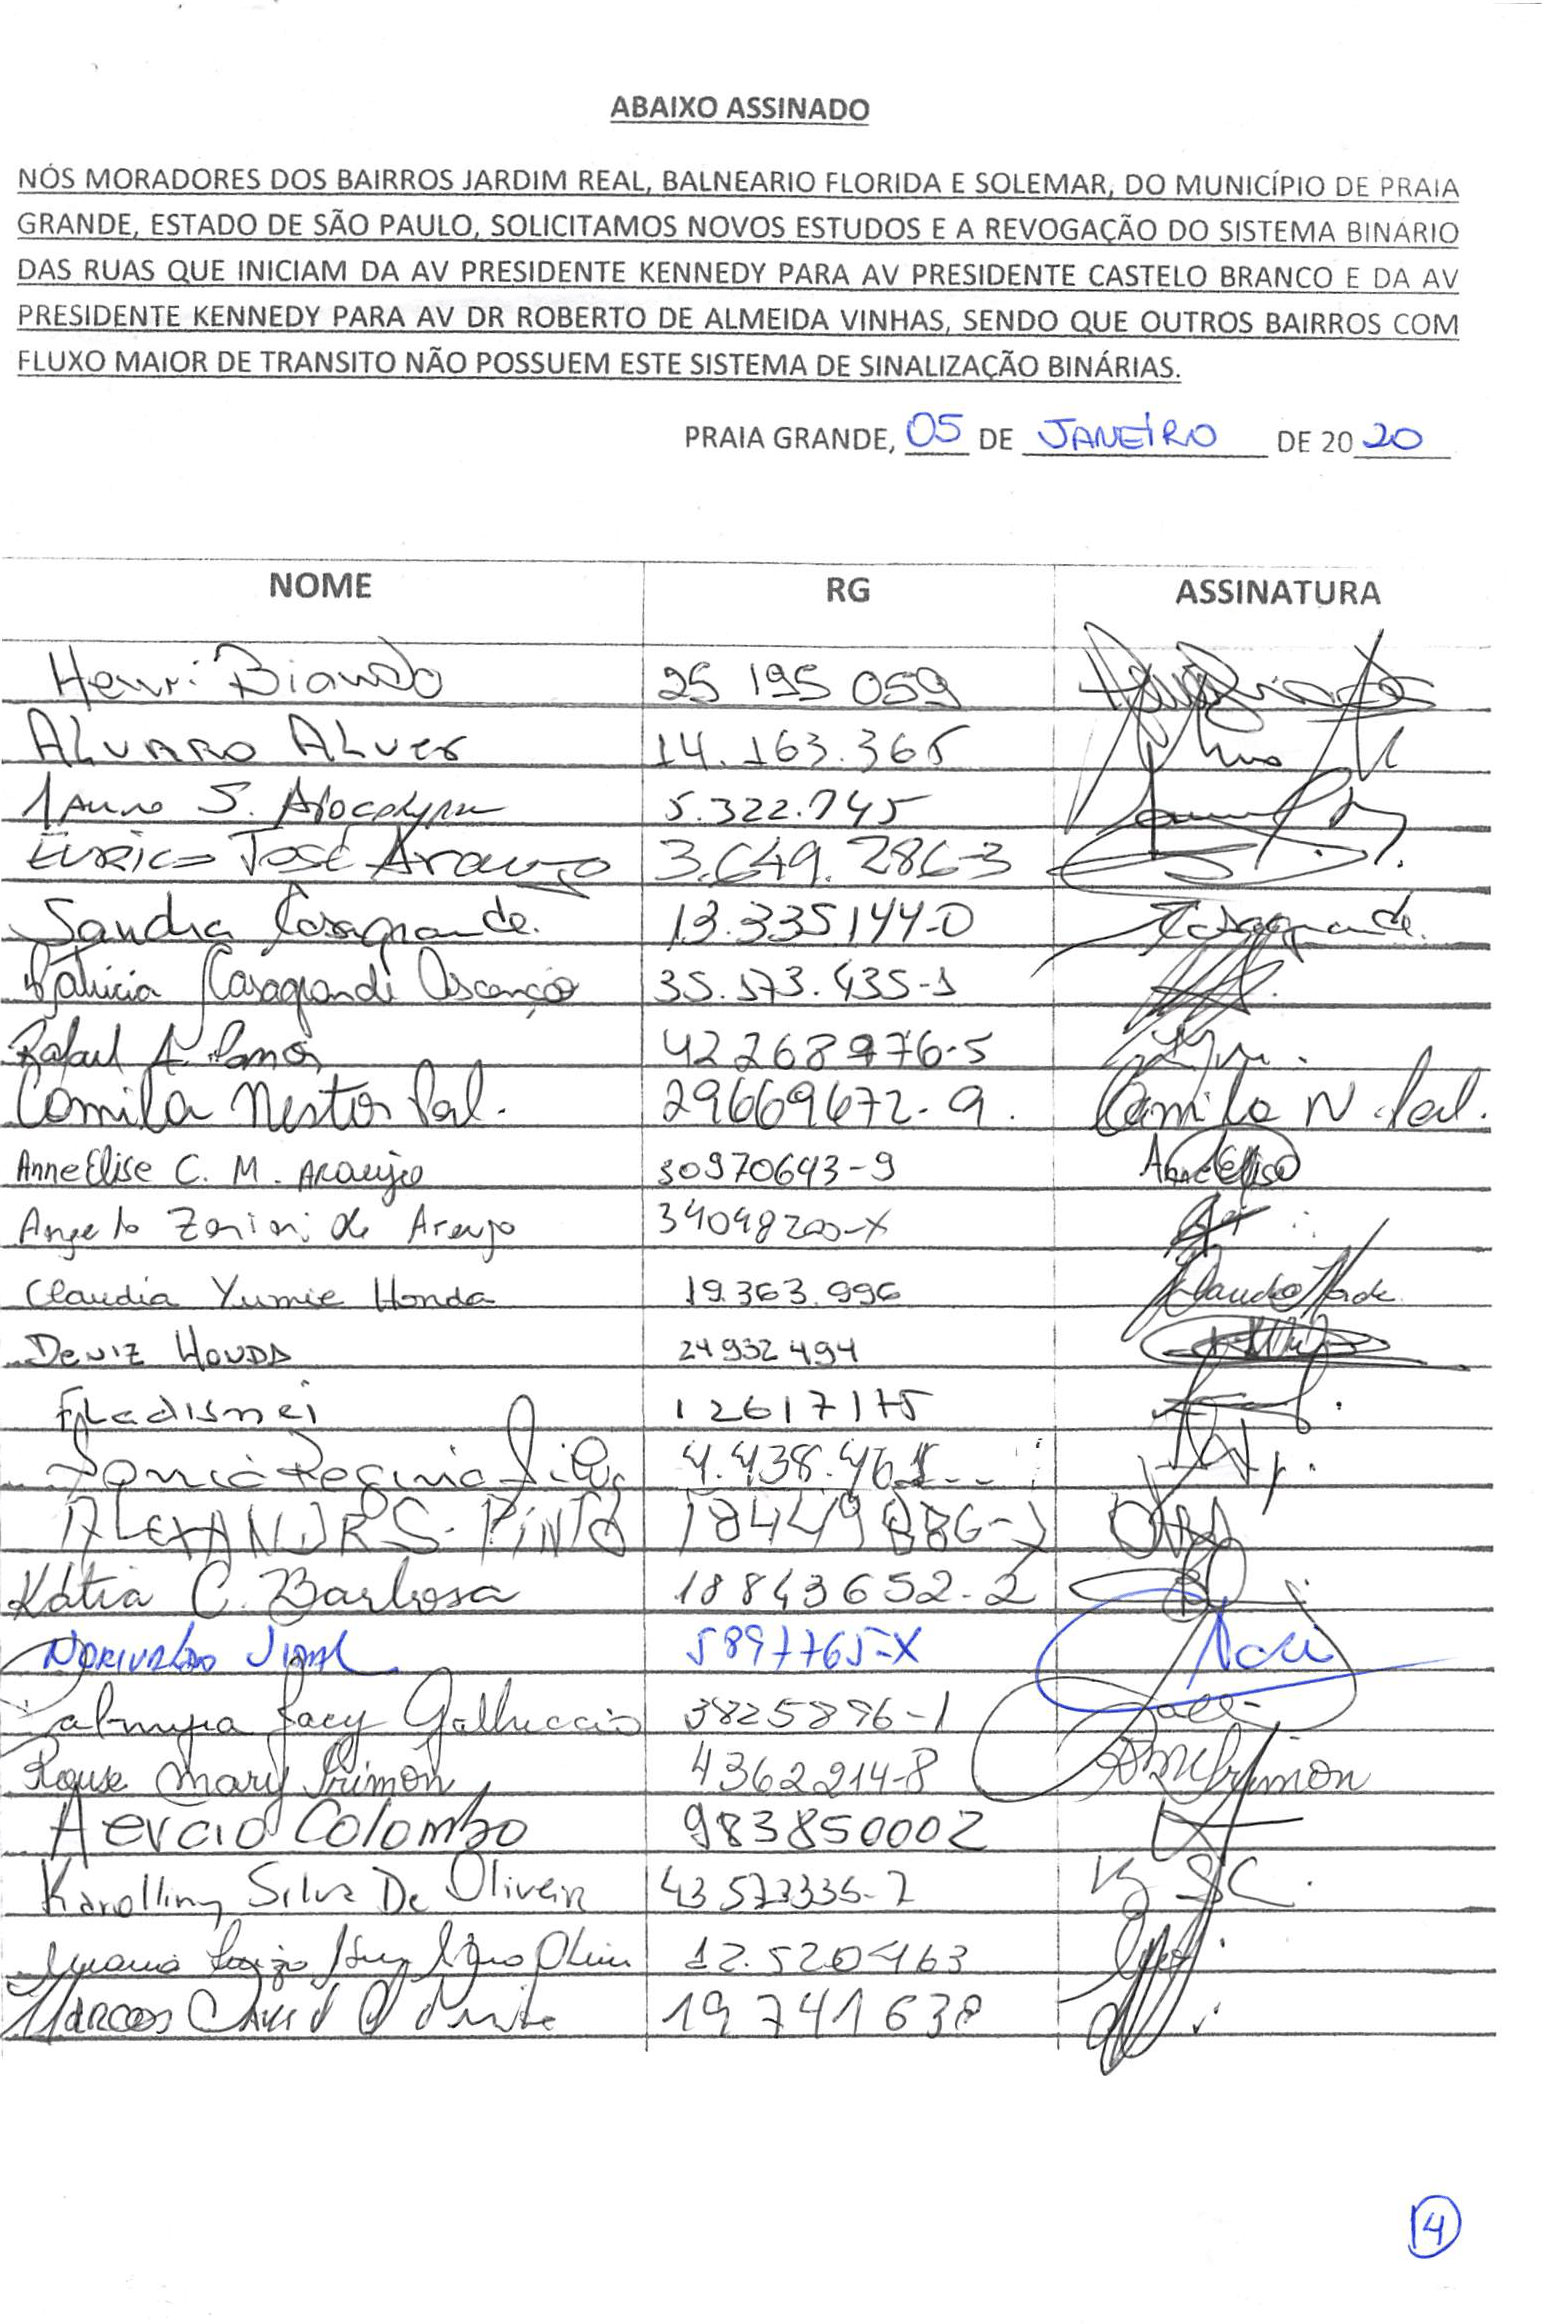 ABAIXO ASSINADO
NÓS MORADORES DOS BAIRROS JARDIM REAL, BALNEARIO FLORIDA E SOLEMAR, DO MUNICÍPIO DE PRAIA
GRANDE, ESTADO DE SÃO PAULO, SOLICITAMOS NOVOS ESTUDOS E A REVOGAÇÃO DO SISTEMA BINÁRIO
DAS RUAS QUE INICIAM DA AV PRESIDENTE KENNEDY PARA AV PRESIDENTE CASTELO BRANCO E DA AV
PRESIDENTE KENNEDY PARA AV DR ROBERTO DE ALMEIDA VINHAS, SENDO QUE OUTROS BAIRROS COM
FLUXO MAIOR DE TRANSITO NÃO POSSUEM ESTE SISTEMA DE SINALIZAÇÃO BINÁRIAS.
PRAIA GRANDE, 05 DE JANEIRO DE 2020
NOME RG ASSINATURA
Henri 25 195 059
ALVARO ALVES 14.163.365
S. 5.322.745
EURICO JOSÉ ARAUJO 3.649.286-3
Sandra Casagrande. 13.335144-0 Casagrande.
Patricia Casagrande 35.573.435-1
Rafael A. 42268976-5
Camila Nestor 29669672-9. Camila N.
AnneElise C. M. ARAUJO 30970643-9 AnneElise
Angelo de Araujo 34048200-X
Claudia Yumie Honda 19.363.996 Claudia
DENIZ HONDA 24932494
12617175
Regina Silva 4.438.461
ALEXANDRE S. PINTO
Kátia C. Barbosa 18843652-2
NORIVALDO 5897765-X
Jacy Galluccio 3825896-1
Mary Primon 4362214-8 Primon
Colombo 983850002
Karolliny Silva De Oliveira 43573335-7
12.520463
MARCOS 19 741 638
4